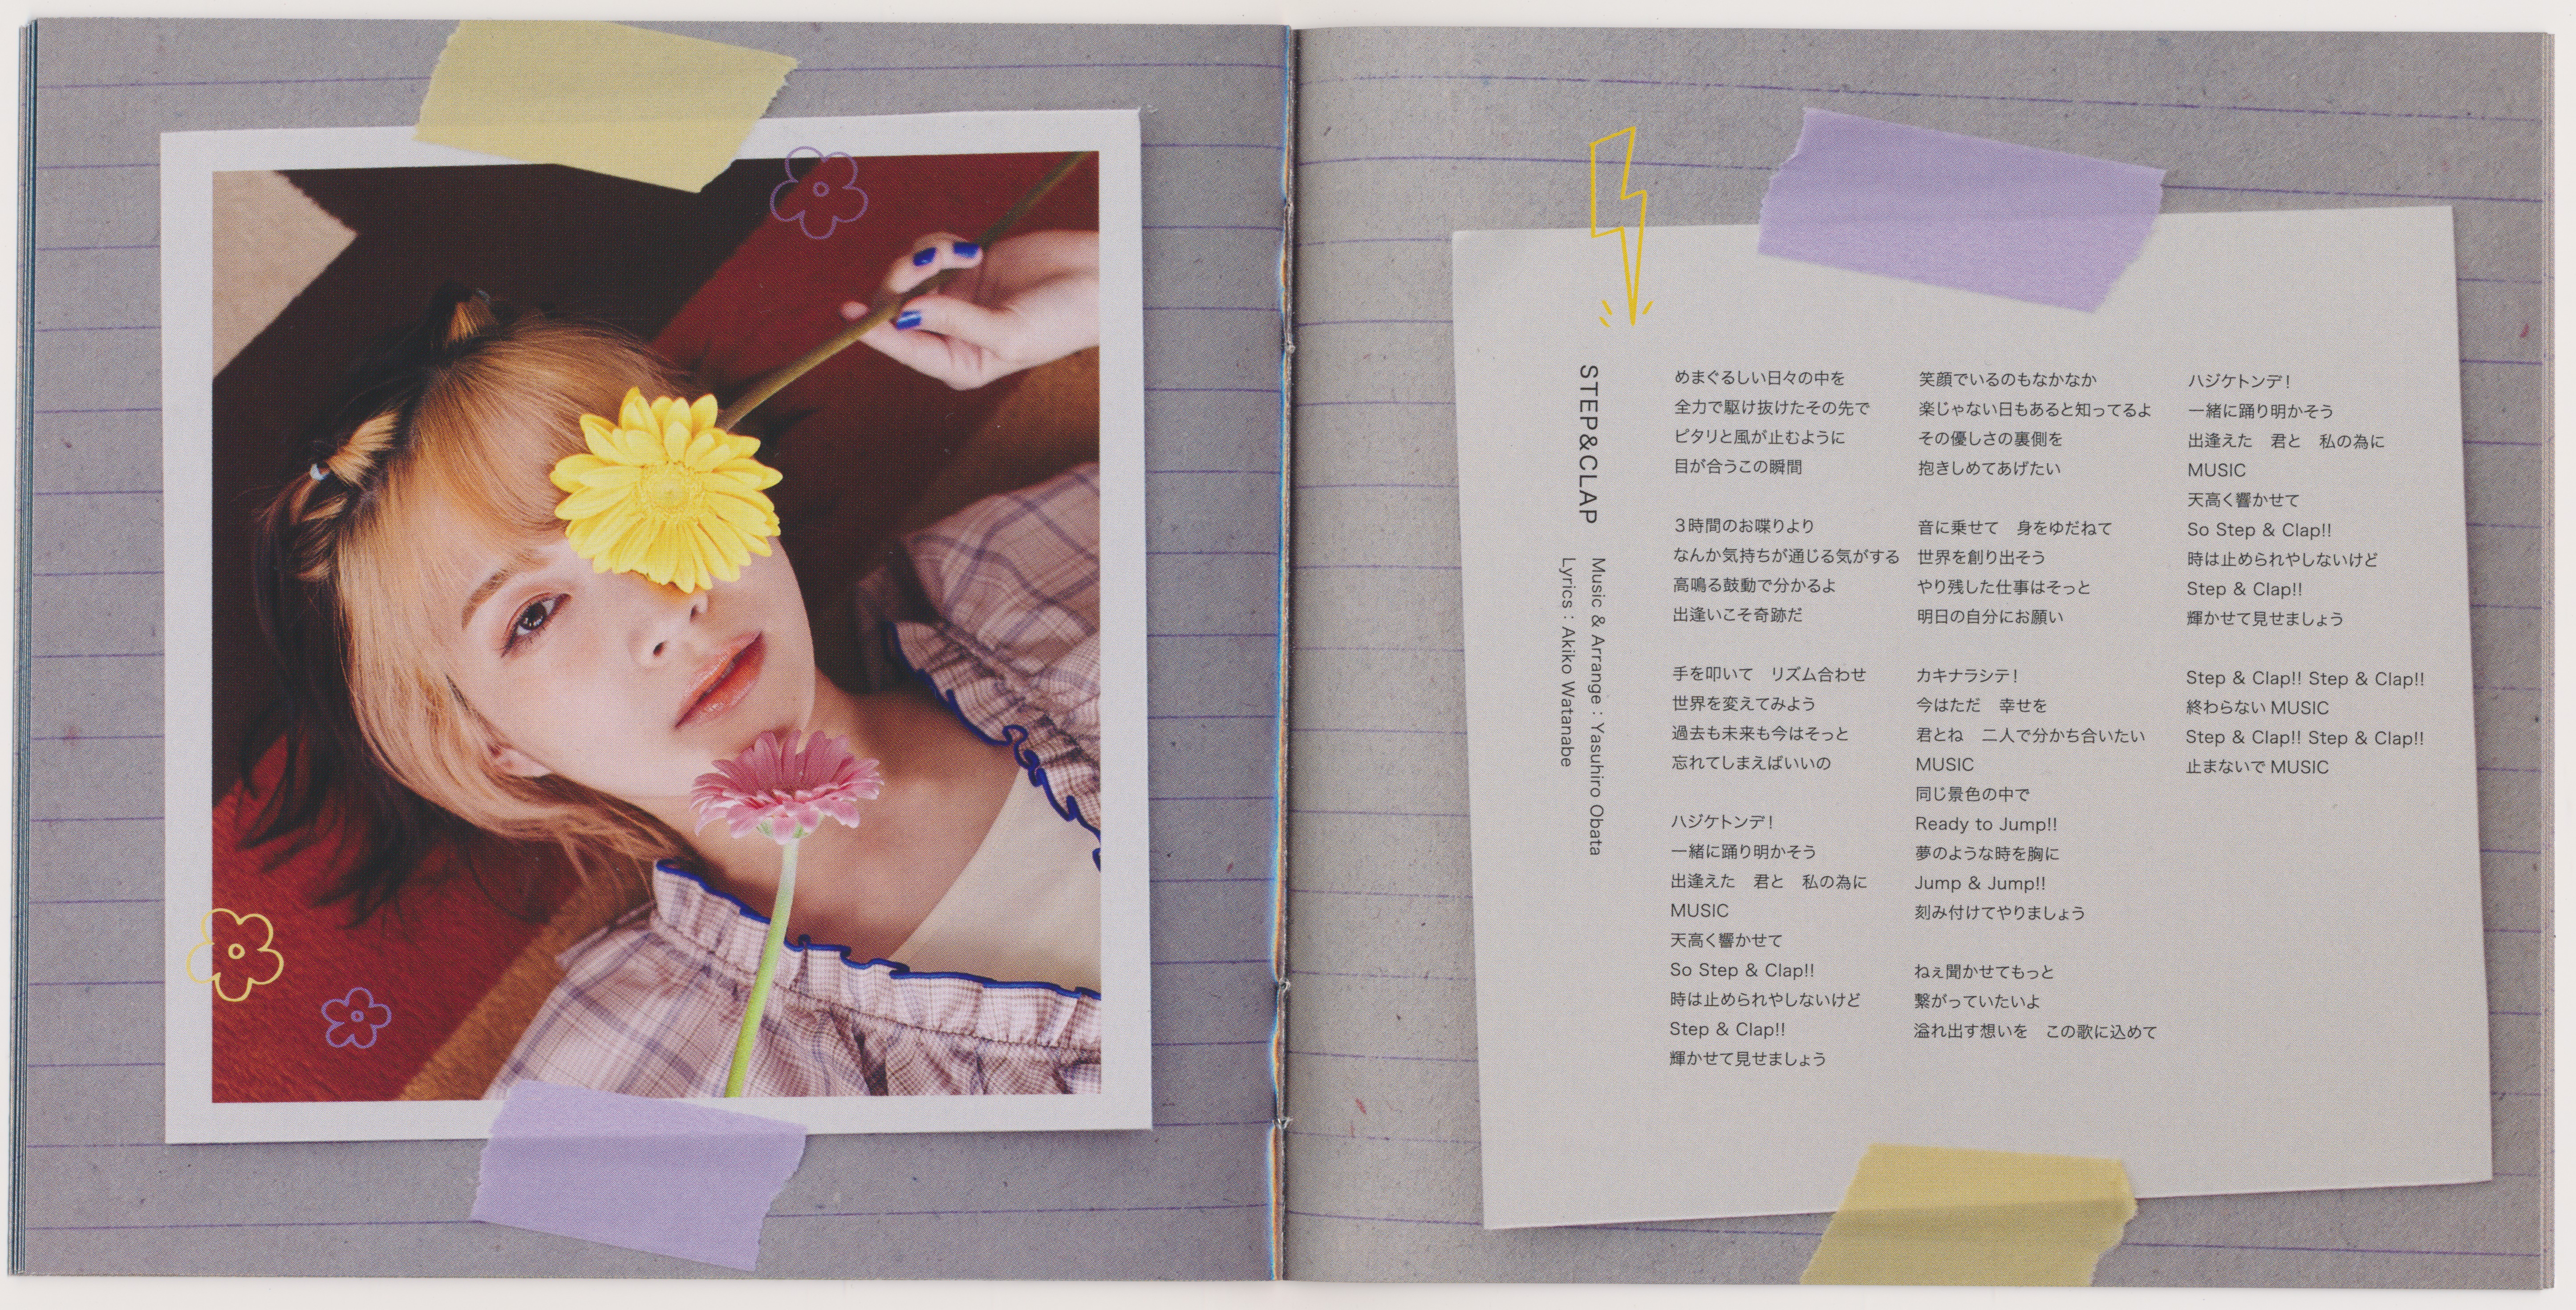 STEP&CLAP
Music & Arrange : Yasuhiro Obata
Lyrics : Akiko Watanabe
めまぐるしい日々の中を
全力で駆け抜けたその先で
ピタリと風が止むように
目が合うこの瞬間
3時間のお喋りより
なんか気持ちが通じる気がする
高鳴る鼓動で分かるよ
出逢いこそ奇跡だ
手を叩いて　リズム合わせ
世界を変えてみよう
過去も未来も今はそっと
忘れてしまえばいいの
ハジケトンデ!
一緒に踊り明かそう
出逢えた　君と　私の為に
MUSIC
天高く響かせて
So Step & Clap!!
時は止められやしないけど
Step & Clap!!
輝かせて見せましょう
笑顔でいるのもなかなか
楽じゃない日もあると知ってるよ
その優しさの裏側を
抱きしめてあげたい
音に乗せて　身をゆだねて
世界を創り出そう
やり残した仕事はそっと
明日の自分にお願い
カキナラシテ!
今はただ　幸せを
君とね　二人で分かち合いたい
MUSIC
同じ景色の中で
Ready to Jump!!
夢のような時を胸に
Jump & Jump!!
刻み付けてやりましょう
ねぇ聞かせてもっと
繋がっていたいよ
溢れ出す想いを　この歌に込めて
ハジケトンデ!
一緒に踊り明かそう
出逢えた　君と　私の為に
MUSIC
天高く響かせて
So Step & Clap!!
時は止められやしないけど
Step & Clap!!
輝かせて見せましょう
Step & Clap!! Step & Clap!!
終わらない MUSIC
Step & Clap!! Step & Clap!!
止まないで MUSIC